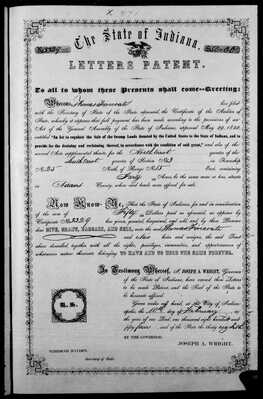 The State of Indiana,
LETTERS PATENT.
To all to whom these Presents shall come—Greeting:
Whereas, Thomas has filed
with the Secretary of State of the State aforesaid the Certificate of the Auditor of
State, whereby it appears that full payment has been made according to the provisions of an
Act of the General Assembly of the State of Indiana, approved May 29, 1852,
entitled "An Act to regulate the Sale of the Swamp Lands donated by the United States to the State of Indiana, and to
provide for the draining and reclaiming thereof, in accordance with the condition of said grant," and also of the
several Acts supplemental thereto, for the quarter of the
quarter of Section No. 3 in Township
No. 25 North of Range No. East containing
Forty Acres, be the same more or less, situate
in Adams County, where said lands were offered for sale.
Now Know Ye, That the State of Indiana, for and in consideration
of the sum of Fifty Dollars paid as aforesaid, as appears by
Certificate No. has given, granted, bargained and sold, and by these Presents
does GIVE, GRANT, BARGAIN, AND SELL, unto the said Thomas
and to heirs and assigns, the said Tract
above described, together with all the rights, privileges, immunities, and appurtenances
of whatsoever nature thereunto belonging TO HAVE AND TO HOLD THE SAME FOREVER.
In Testimony Whereof, I, JOSEPH A. WRIGHT, Governor
of the State of Indiana, have caused these Letters
to be made Patent, and the Seal of the State to
be hereunto affixed.
Given under my hand, at the City of Indian-
apolis, the day of February
the year of our Lord, one thousand eight hundred and
fifty four, and of the State the thirty eighth
L. S.
BY THE GOVERNOR:
JOSEPH A. WRIGHT.
Secretary of State.